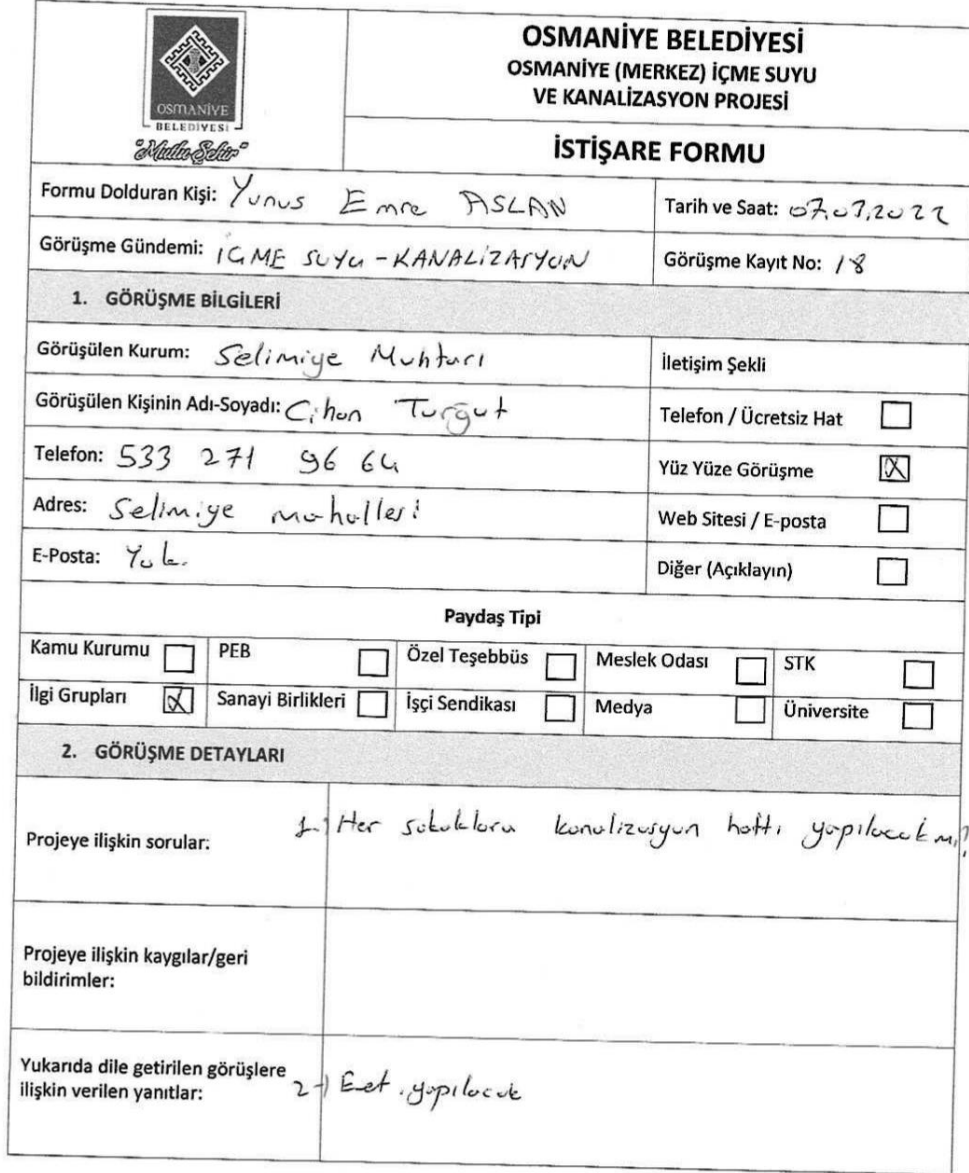 OSMANİYE
BELEDİYESİ
"Mutlu Şehir"
OSMANİYE BELEDİYESİ
OSMANİYE (MERKEZ) İÇME SUYU
VE KANALİZASYON PROJESİ
İSTİŞARE FORMU
Formu Dolduran Kişi: Yunus Emre ASLAN
Tarih ve Saat: 07.07.2022
Görüşme Gündemi: İÇME SUYU - KANALİZASYON
Görüşme Kayıt No: 18
1. GÖRÜŞME BİLGİLERİ
Görüşülen Kurum: Selimiye Muhtarı
İletişim Şekli
Görüşülen Kişinin Adı-Soyadı: Cihan Turğut
Telefon / Ücretsiz Hat
Telefon: 533 271 96 64
Yüz Yüze Görüşme ☒
Adres: Selimiye mahallesi
Web Sitesi / E-posta
E-Posta: Yok.
Diğer (Açıklayın)
Paydaş Tipi
Kamu Kurumu PEB Özel Teşebbüs Meslek Odası STK
İlgi Grupları ☒ Sanayi Birlikleri İşçi Sendikası Medya Üniversite
2. GÖRÜŞME DETAYLARI
Projeye ilişkin sorular:
1-) Her sokaklara kanalizasyon hattı yapılacak mı?
Projeye ilişkin kaygılar/geri
bildirimler:
Yukarıda dile getirilen görüşlere
ilişkin verilen yanıtlar:
2-) Evet, yapılacak